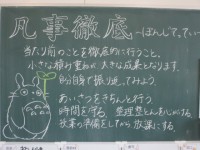 凡事徹底 ～ぼんじてってい
当たり前のことを徹底的に行うこと。
小さな積み重ねが大きな成果となります。
各自で振り返ってみよう
あいさつをきちんと行う
時間を守る 整理整とんを心がける
次の準備をしてから放課にする